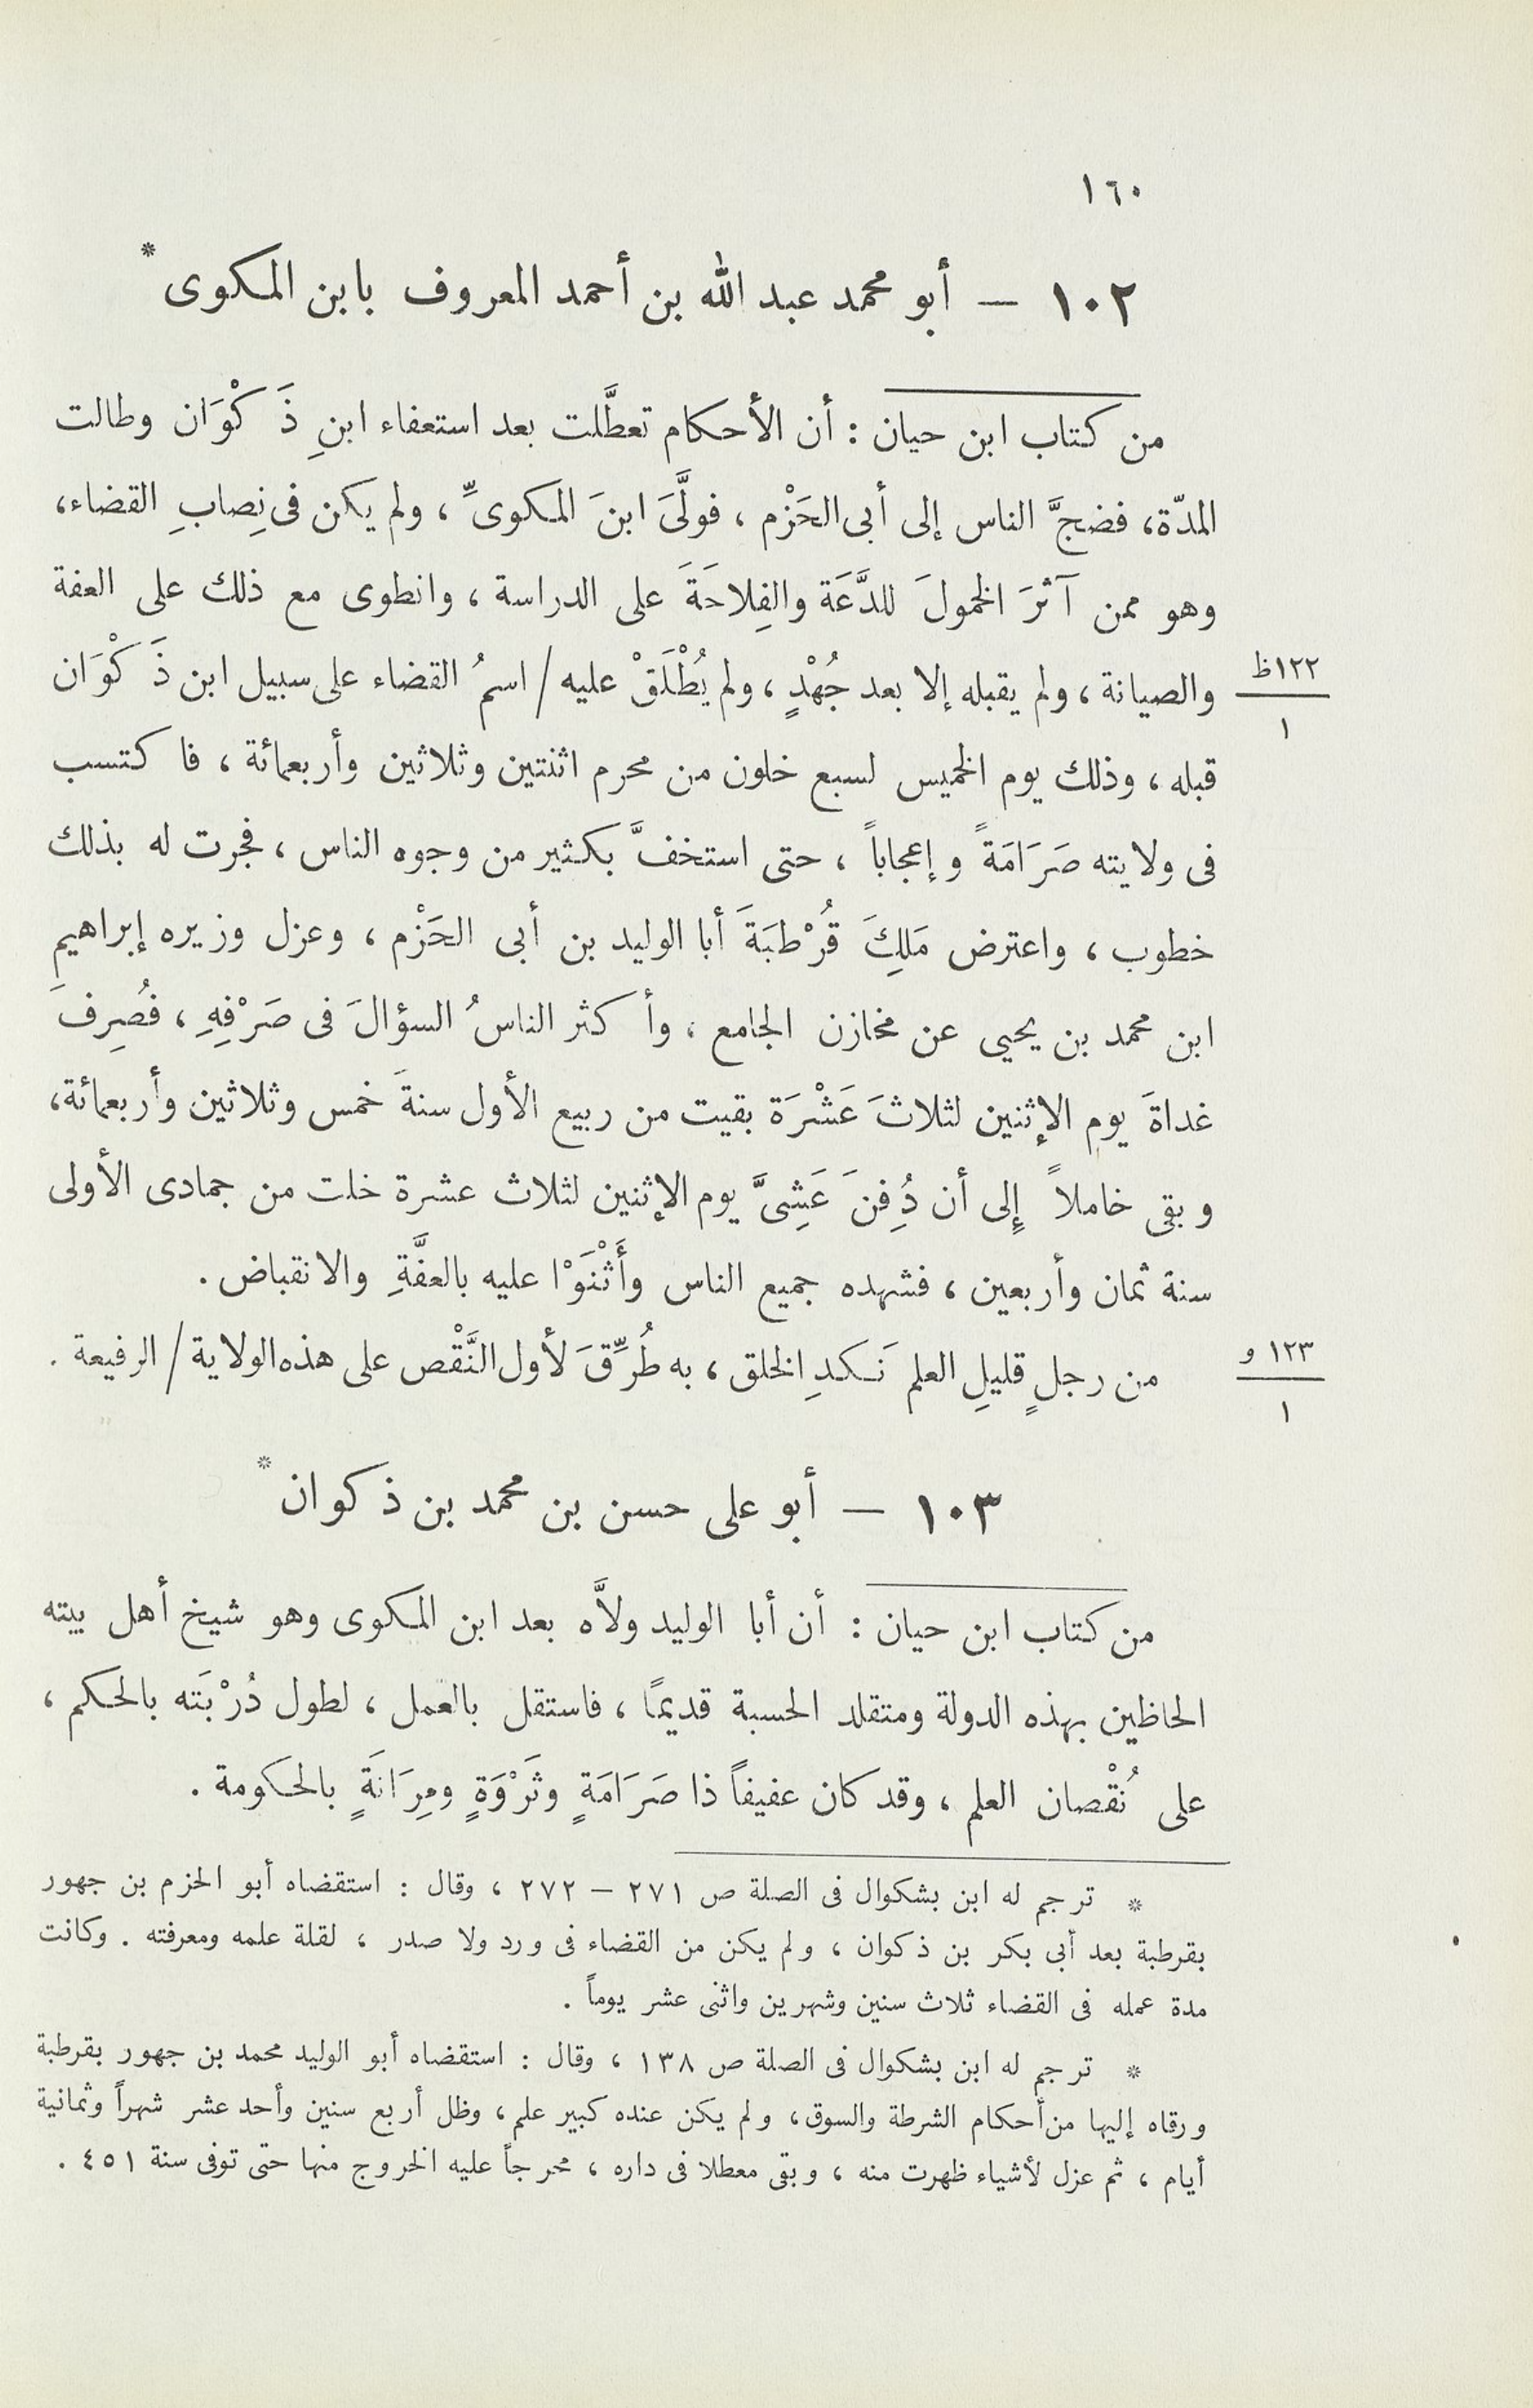 ١٦٠
١٠٢ – أبو محمد عبد الله بن أحمد المعروف بابن المكوى *
من كتاب ابن حيان : أن الأحكام تعطَّلت بعد استعفاء ابنِ ذَكْوَان وطالت
المدّة، فضجَّ الناس إلى أبى الحَزْم ، فولَّىَ ابنَ المكوىِّ ، ولم يكن فى نِصابِ القضاء،
وهو ممن آثرَ الخمولَ للدَّعَة والفِلاحَةَ على الدراسة ، وانطوى مع ذلك على العفة
والصيانة ، ولم يقبله إلا بعد جُهْدٍ ، ولم يُطْلَقْ عليه / اسمُ القضاء على سبيل ابن ذَكْوَان
١٢٢ظ
١
قبله ، وذلك يوم الخميس لسبع خلون من محرم اثنتين وثلاثين وأربعمائة ، فاكتسب
فى ولايته صَرَامَةً وإعجاباً ، حتى استخفَّ بكثير من وجوه الناس ، فجرت له بذلك
خطوب ، واعترض مَلِكَ قُرْطبَةَ أبا الوليد بن أبى الحَزْم ، وعزل وزيره إبراهيمِ
ابن محمد بن يحيى عن مخازن الجامع ، وأكثر الناسُ السؤالَ فى صَرْفِهِ ، فصُرِفَ
غداةَ يومِ الإثنين لثلاثَ عَشْرَة بقيت من ربيع الأول سنةَ خمس وثلاثين وأربعمائة،
وبقى خاملاً إِلى أن دُفِنَ عَشِىَّ يوم الإثنين لثلاث عشرة خلت من جمادى الأولى
سنة ثمان وأربعين ، فشهده جميع الناس وأَثْنَوْا عليه بالعفَّةِ والانقباض .
من رجلٍ قليلِ العلم نَكدِ الخلق ، به طُرِّقَ لأول النَّقْص على هذه الولاية / الرفيعة .
١٢٣ و
١
١٠٣ – أبو على حسن بن محمد بن ذكوان *
من كتاب ابن حيان : أن أبا الوليد ولاَّه بعد ابن المكوى وهو شيخ أهل بيته
الحاظين بهذه الدولة ومتقلد الحسبة قديمًا ، فاستقل بالعمل ، لطول دُرْبَته بالحكم ،
على نُقْصان العلم ، وقد كان عفيفاً ذا صَرَامَةٍ وثَرْوَةٍ ومِرَانَةٍ بالحكومة .
* ترجم له ابن بشكوال فى الصلة ص ٢٧١ – ٢٧٢ ، وقال : استقضاه أبو الحزم بن جهور
بقرطبة بعد أبى بكر بن ذكوان ، ولم يكن من القضاء فى ورد ولا صدر ، لقلة علمه ومعرفته . وكانت
مدة عمله فى القضاء ثلاث سنين وشهرين واثنى عشر يوماً .
* ترجم له ابن بشكوال فى الصلة ص ١٣٨ ، وقال : استقضاه أبو الوليد محمد بن جهور بقرطبة
ورقاه إليها من أحكام الشرطة والسوق، ولم يكن عنده كبير علم، وظل أربع سنين وأحد عشر شهراً وثمانية
أيام ، ثم عزل لأشياء ظهرت منه ، وبقى معطلا فى داره ، محرجاً عليه الخروج منها حتى توفى سنة ٤٥١ .